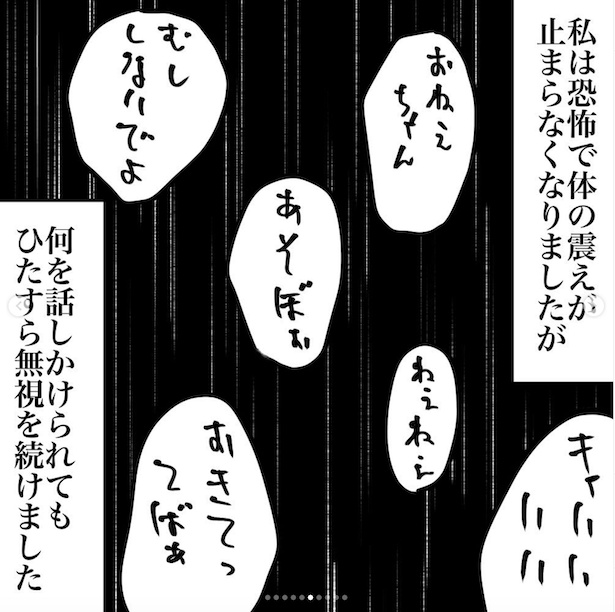 私は恐怖で体の震えが
止まらなくなりましたが
おねぇ
ちゃん
むし
しないでよ
あそぼぉ
ねぇねぇ
キャハハ
ハハ
ハハ
おきてっ
てばぁ
何を話しかけられても
ひたすら無視を続けました